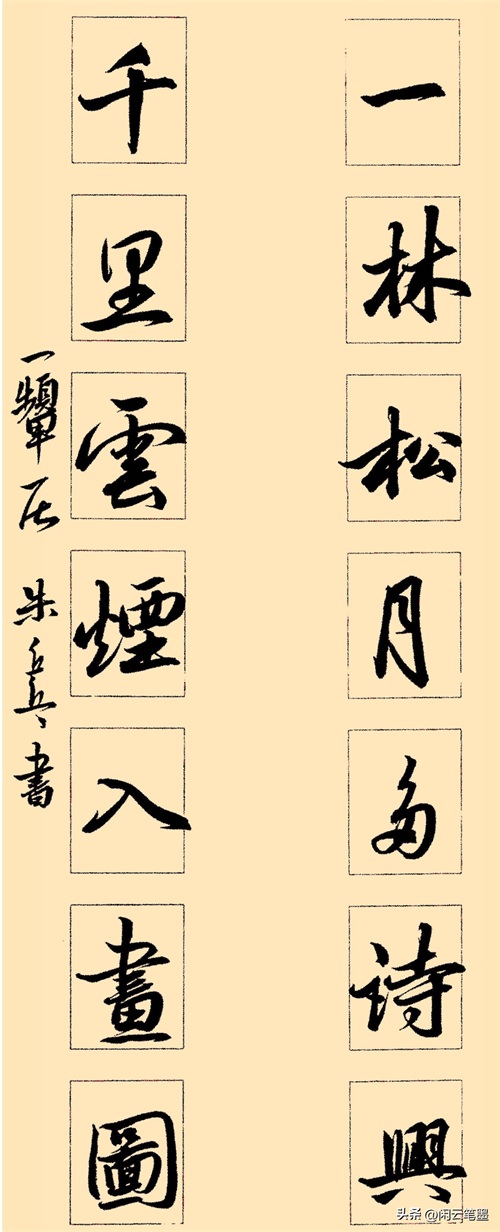 一林松月多诗興
千里雲煙入畫圖
一顰居 朱 書
头条 @闲云笔墨